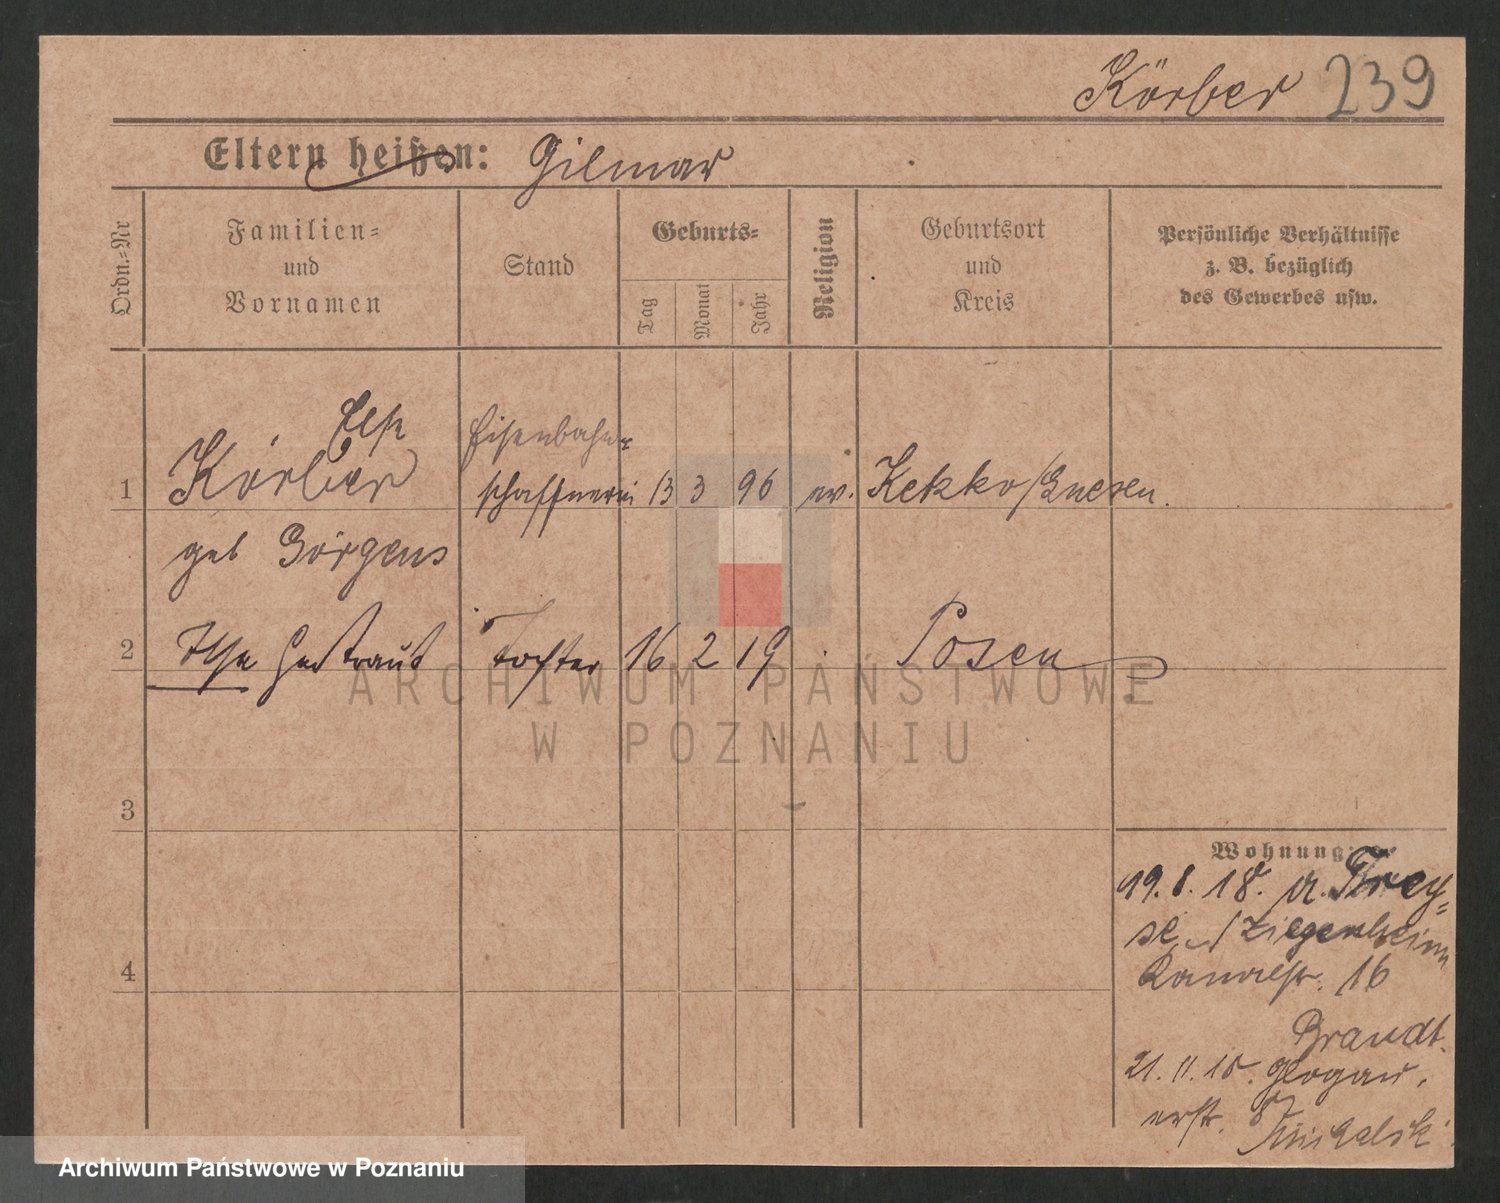 Körber 239
Eltern heißen: Gilmar
Ordn.-Nr
Familien-
und
Vornamen
Stand
Geburts-
Tag
Monat
Jahr
Religion
Geburtsort
und
Kreis
Persönliche Verhältnisse
z. B. bezüglich
des Gewerbes usw.
Else
Eisenbahn-
1 Körber schaffnerin 13 3 96 ev. Kekko/Gnesen.
geb Görgens
2 Ilse Gertraud Tochter 16 2 19 Posen
ARCHIWUM PAŃSTWOWE
W POZNANIU
3
Wohnung:
19.8.18. a. Trey-
se / Ziegenheim
4
Kanalstr. 16
Brandt.
21.11.18. Glogau.
Archiwum Państwowe w Poznaniu